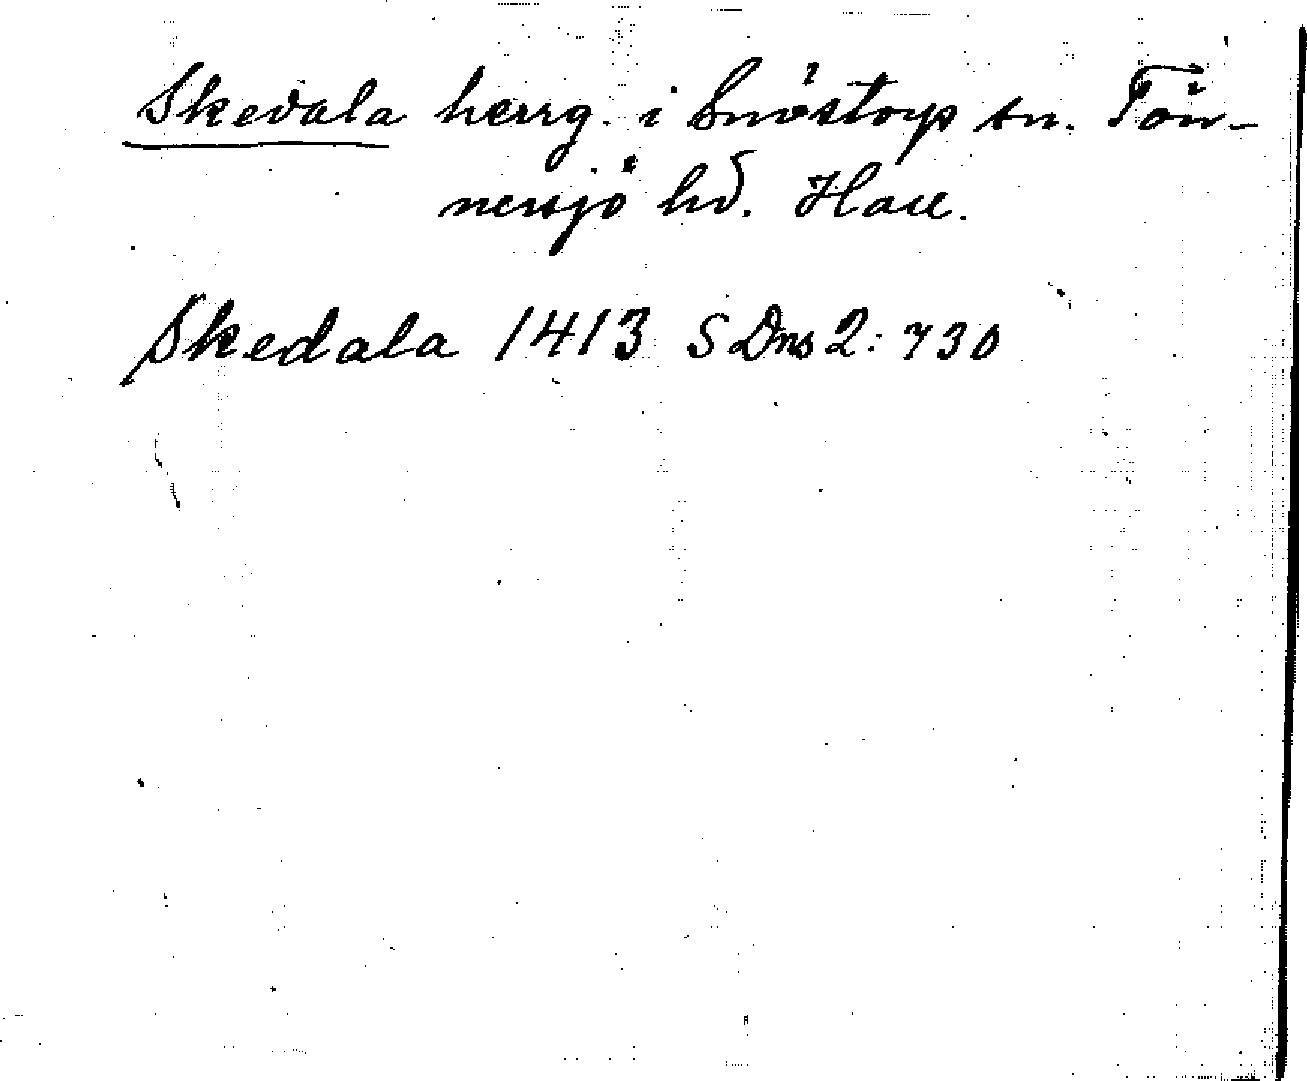 Skedala herrg. i Snöstorps sn. Tön-
nersjö hd. Hall.
Skedala 1413 SDns 2: 730